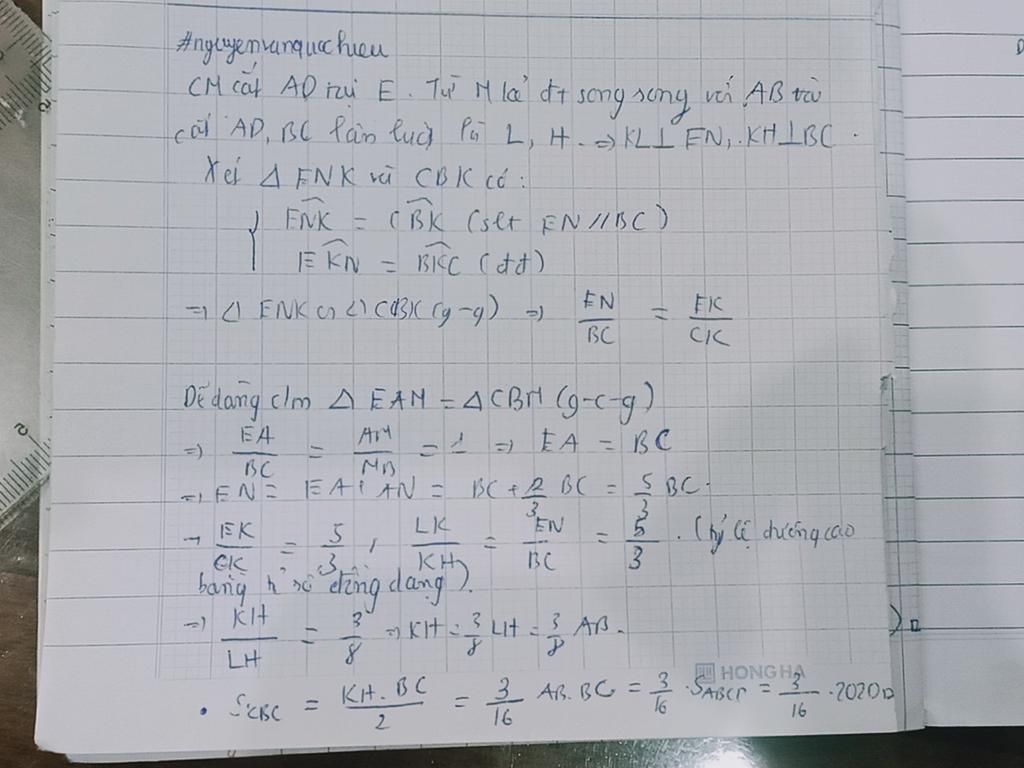 #nguyenvanquochieu
CM cắt AD tại E. Từ M kẻ đt song song với AB và
cắt AD, BC lần lượt là L, H. ⇒ KL⊥ EN, KH⊥BC.
Xét Δ ENK và CBK có:
{ ENK = CBK (slt EN//BC)
EKN = BKC (đđ)
⇒ Δ ENK ᔕ Δ CBK (g-g) ⇒ EN/BC = EK/CK
Dễ dàng c/m Δ EAM = Δ CBM (g-c-g)
⇒ EA/BC = AM/MB = 1 ⇒ EA = BC
⇒ EN = EA + AN = BC + 2/3 BC = 5/3 BC.
→ EK/CK = 5/3, LK/KH = EN/BC = 5/3. (tỷ lệ đường cao
bằng tỉ số đồng dạng).
⇒ KH/LH = 3/8 ⇒ KH = 3/8 LH = 3/8 AB.
• S_KBC = KH.BC/2 = 3/16 AB.BC = 3/16 . S_ABCD = 3/16 . 2020
HONG HA